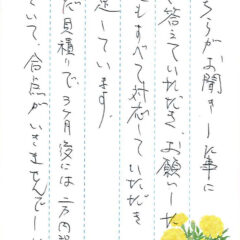 ちらがお聞きした事に
答えていただき、お願いした
もすべて対応していただき
足しています。
だ見積りで、3ヶ月後には一万円
ていて、合点がいきませんでし